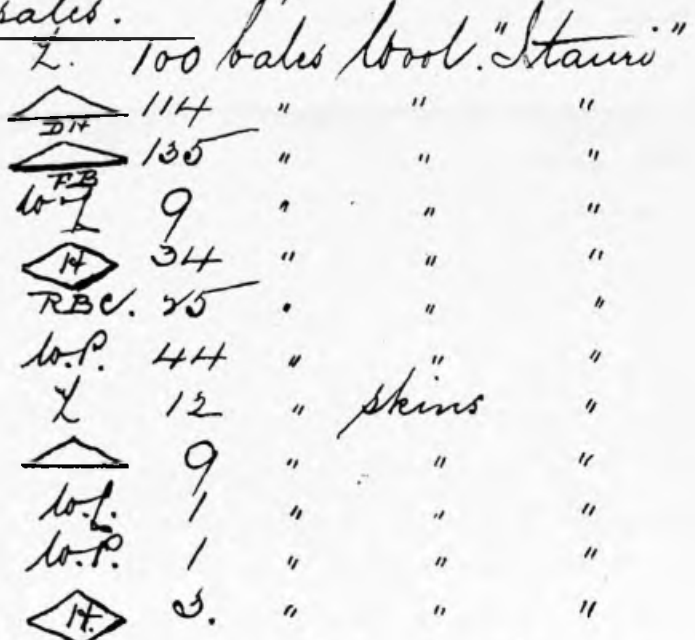 sales.
Z. 100 bales Wool. "Itauri"
114 " " "
DH
135 " " "
FB
W.L 9 " " "
H 34 " " "
RBC. 25 " " "
W.P. 44 " " "
Z 12 " skins "
9 " " "
W.L. 1 " " "
W.P. 1 " " "
H. 3. " " "